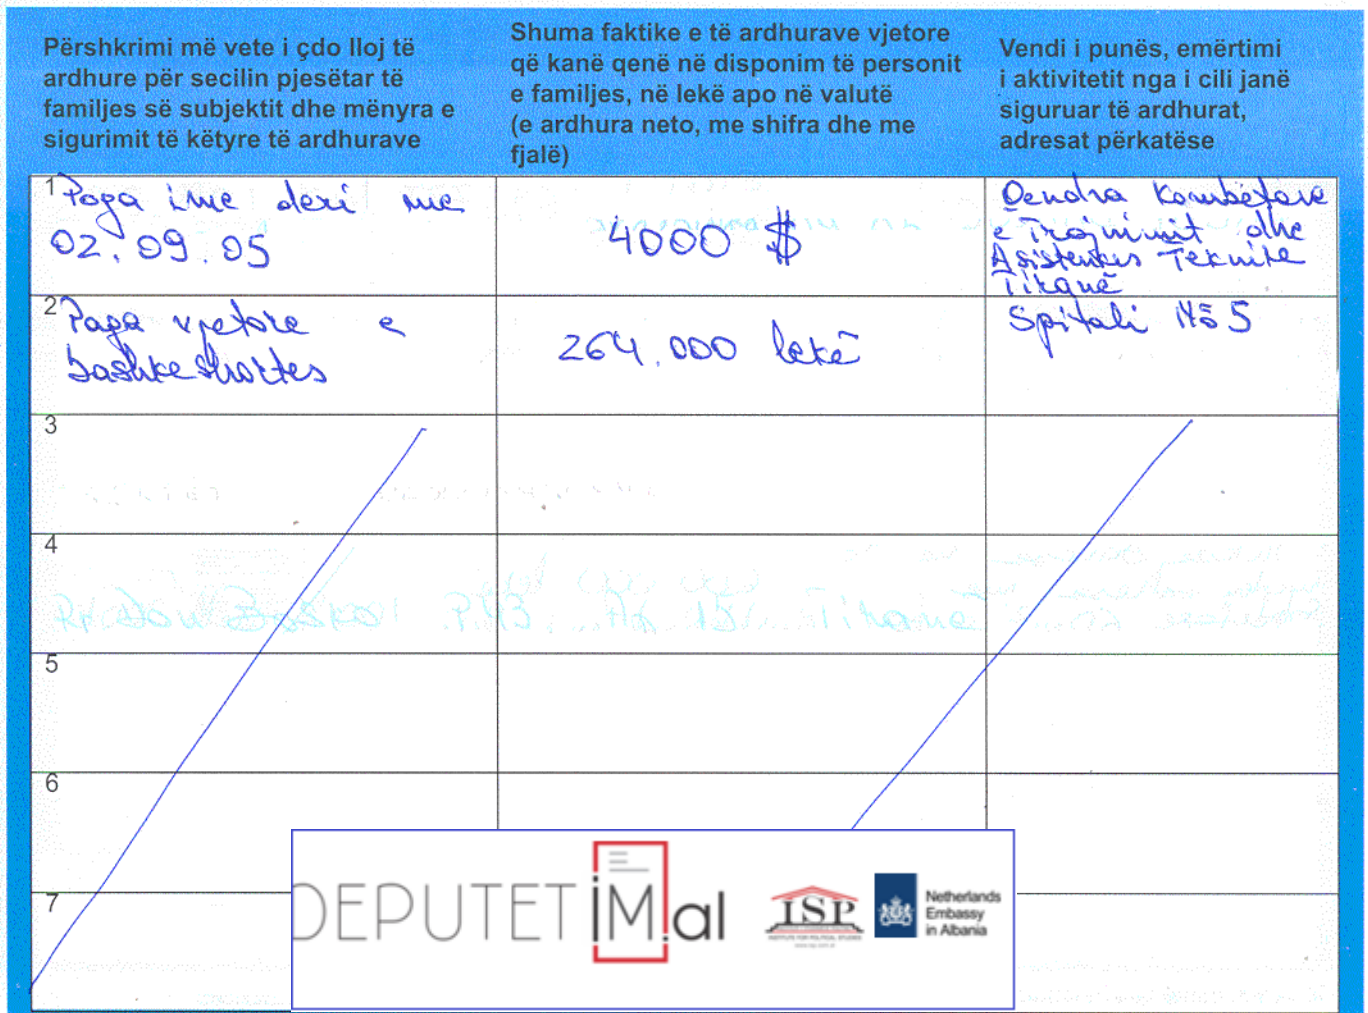 Përshkrimi më vete i çdo lloj të
ardhure për secilin pjesëtar të
familjes së subjektit dhe mënyra e
sigurimit të këtyre të ardhurave
Shuma faktike e të ardhurave vjetore
që kanë qenë në disponim të personit
e familjes, në lekë apo në valutë
(e ardhura neto, me shifra dhe me
fjalë)
Vendi i punës, emërtimi
i aktivitetit nga i cili janë
siguruar të ardhurat,
adresat përkatëse
1 Paga ime deri me
02.09.05
4000 $
Qendra Kombëtare
e Trajnimit dhe
Asistencës Teknike
Tiranë
2 Paga vjetore e
bashkeshortes
264.000 lekë
Spitali Nō 5
3
4
5
6
7
DEPUTETIM.al
ISP
INSTITUTE FOR POLITICAL STUDIES
Netherlands
Embassy
in Albania